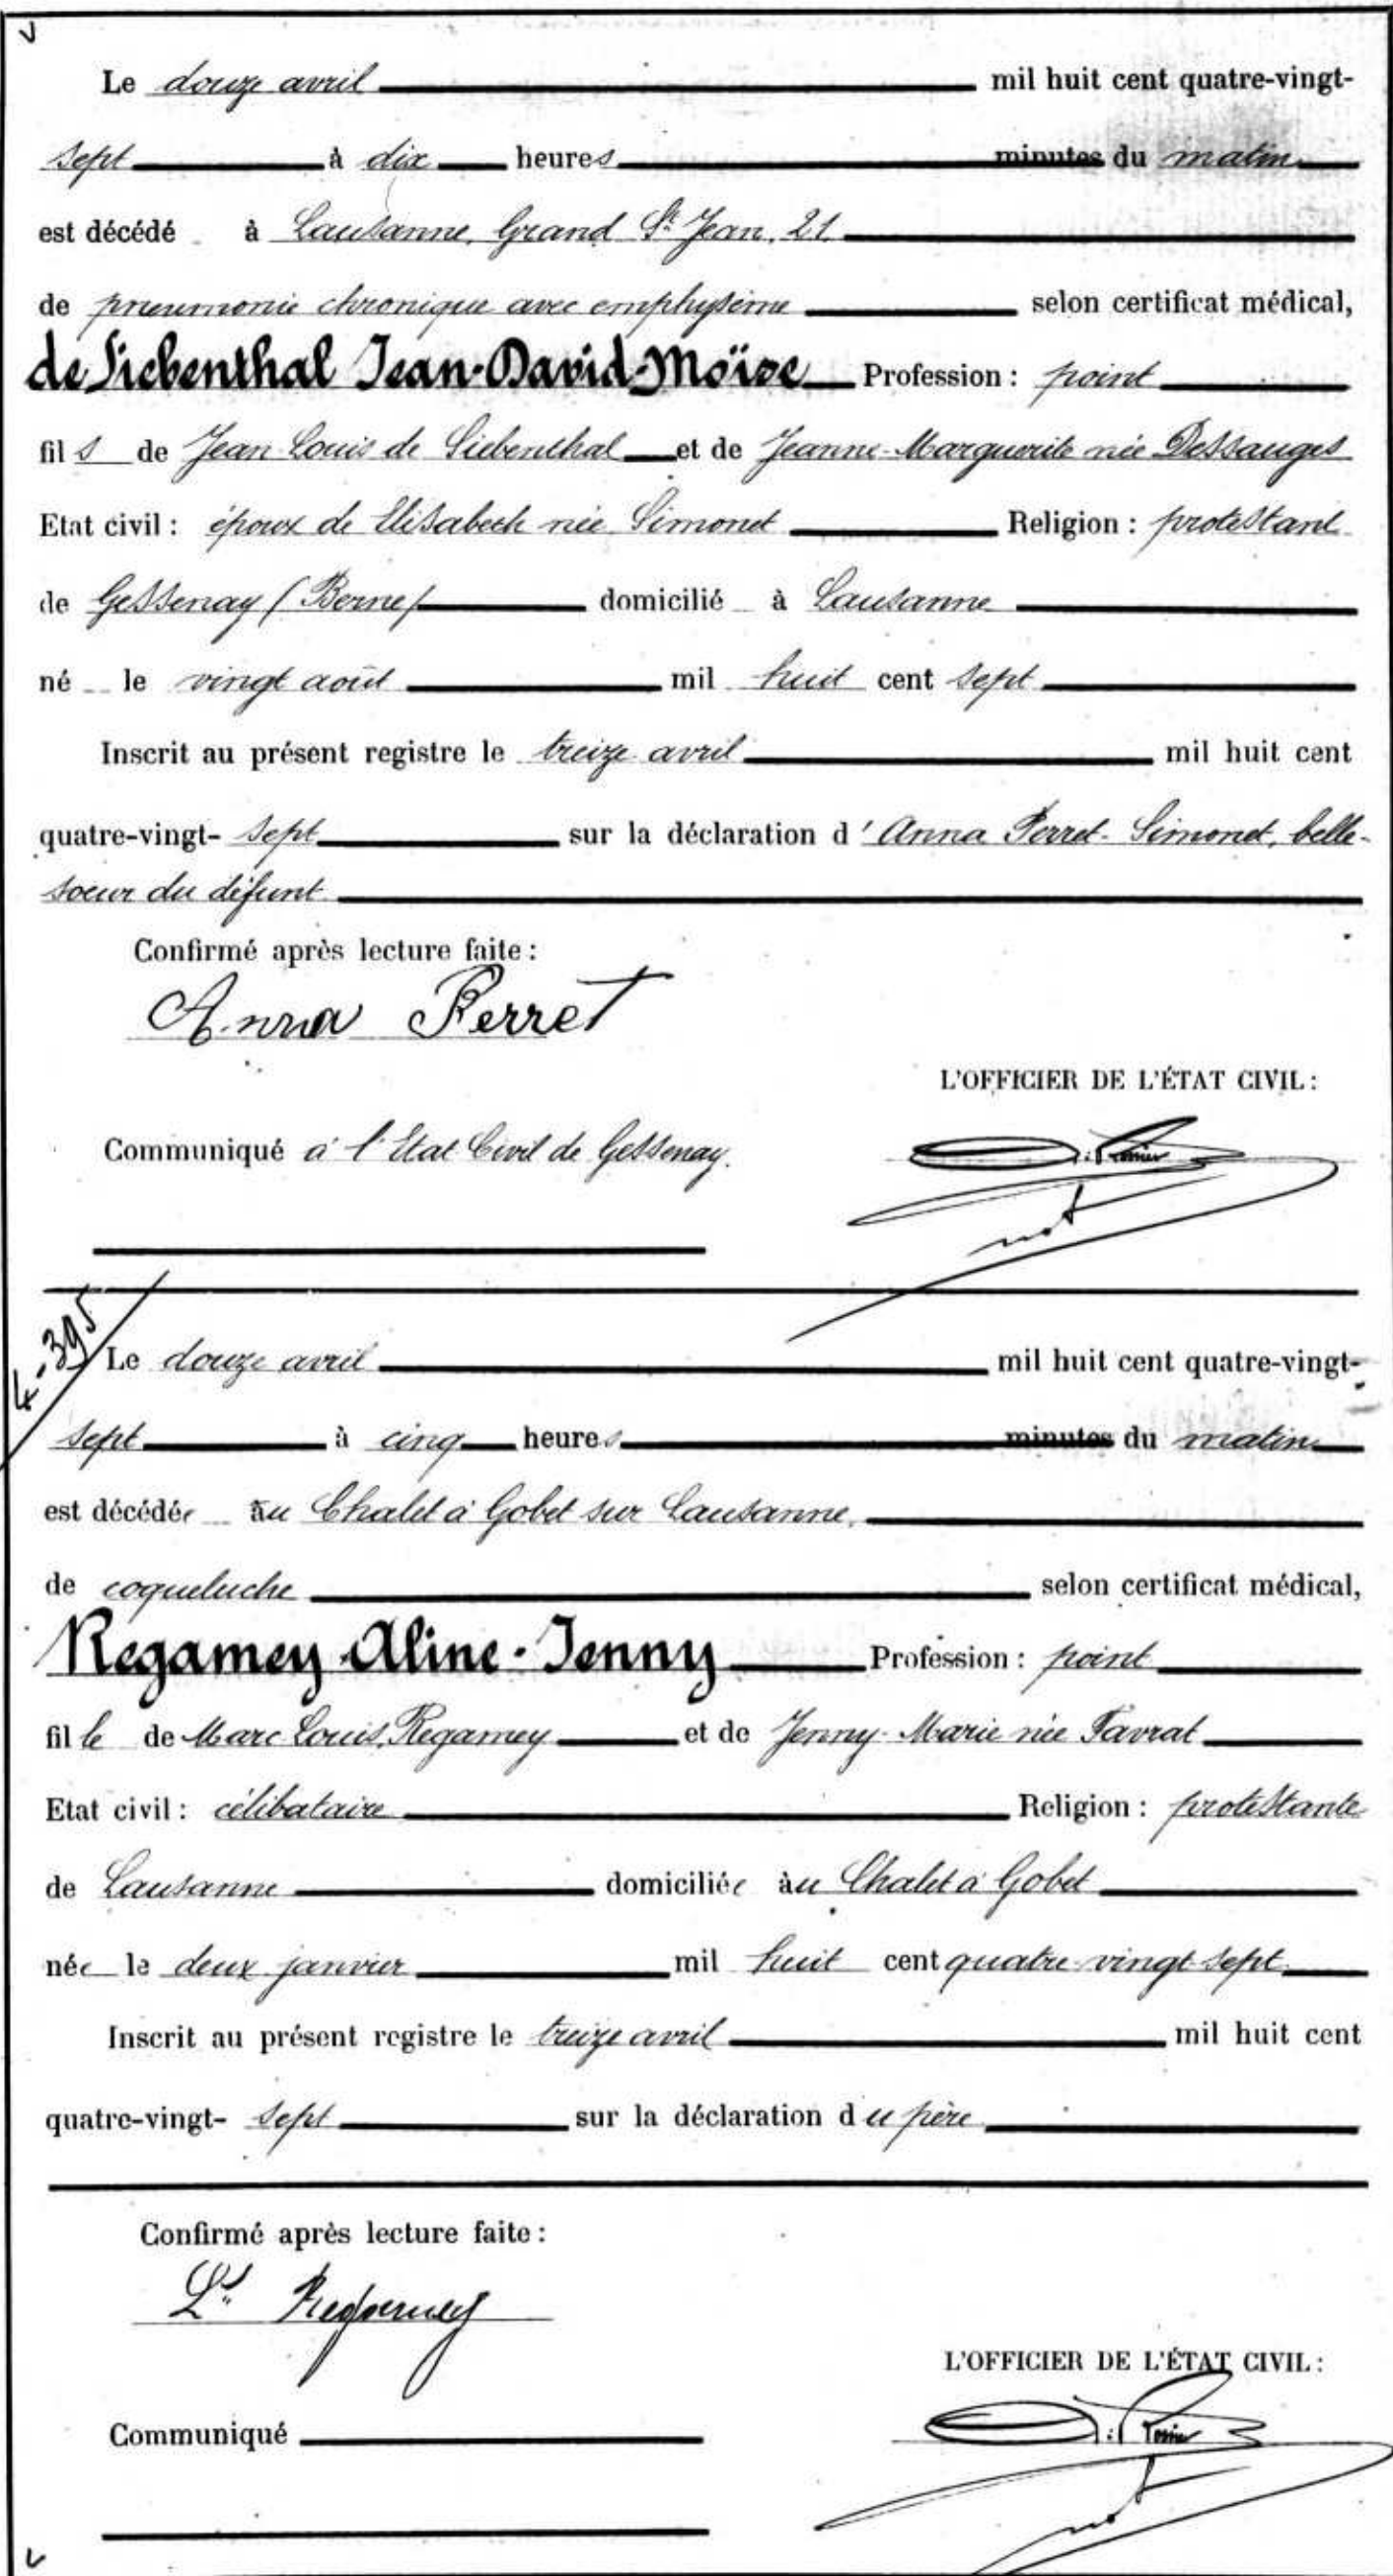 Le douze avril mil huit cent quatre-vingt-
sept à dix heures minutes du matin
est décédé à Lausanne, Grand St Jean, 21
de pneumonie chronique avec emphysème selon certificat médical,
de Siebenthal Jean-David-Moïse Profession : point
fils de Jean Louis de Siebenthal et de Jeanne-Marguerite née Dessauges
Etat civil : époux de Elisabeth née Simonet Religion : protestant
de Gessenay (Berne) domicilié à Lausanne
né le vingt août mil huit cent sept
Inscrit au présent registre le treize avril mil huit cent
quatre-vingt- sept sur la déclaration d'Anna Perret-Simonet, belle-
soeur du défunt
Confirmé après lecture faite :
Anna Perret
L'OFFICIER DE L'ÉTAT CIVIL :
Communiqué à l'Etat Civil de Gessenay.
not
4-395
Le douze avril mil huit cent quatre-vingt-
sept à cinq heures minutes du matin
est décédée au Chalet à Gobet sur Lausanne,
de coqueluche selon certificat médical,
Regamey Aline-Jenny Profession : point
fille de Marc Louis Regamey et de Jenny-Marie née Favrat
Etat civil : célibataire Religion : protestante
de Lausanne domiciliée au Chalet à Gobet
née le deux janvier mil huit cent quatre vingt sept
Inscrit au présent registre le treize avril mil huit cent
quatre-vingt- sept sur la déclaration du père
Confirmé après lecture faite :
Ls Regamey
L'OFFICIER DE L'ÉTAT CIVIL :
Communiqué
not